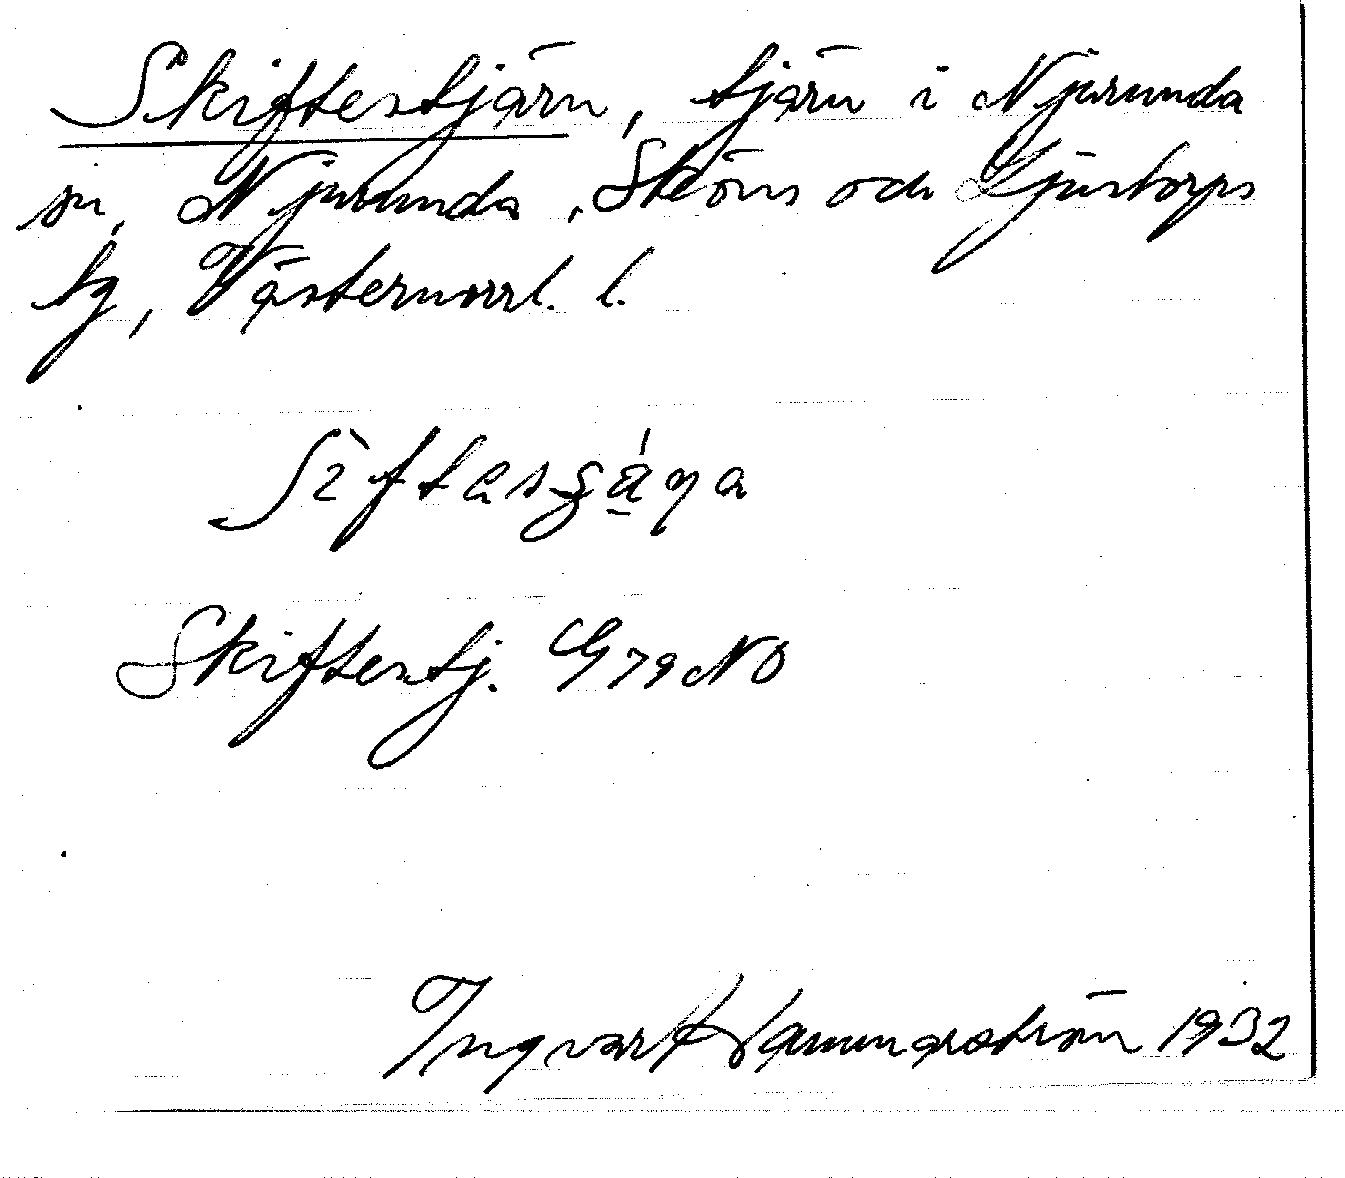 Skiftestjärn, tjärn i Njurunda
sn, Njurunda, Sköns och Ljustorps
tg, Västernorrl. l.
Skiftestj. G79NO
Ingvar Hammarström 1932